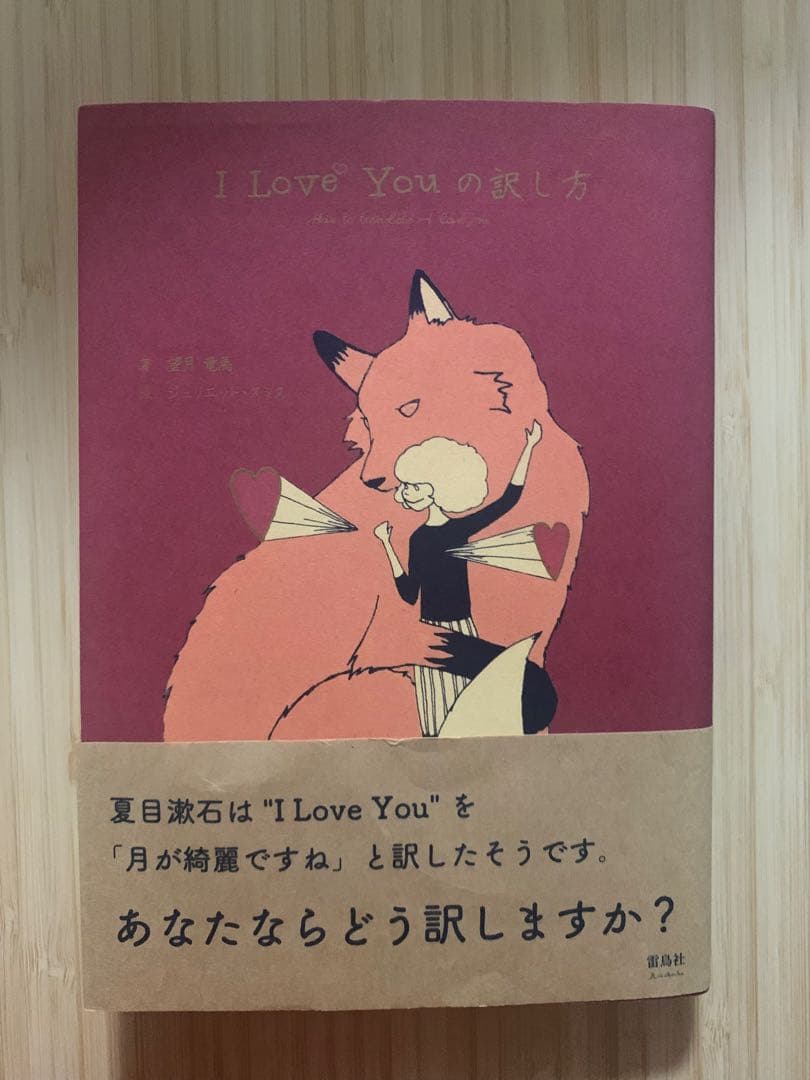 I Love You の訳し方
How to translate I love you
著 望月 竜馬
絵 ジュリエット・スミス
夏目漱石は "I Love You" を
「月が綺麗ですね」と訳したそうです。
あなたならどう訳しますか？
雷鳥社
Raichosha